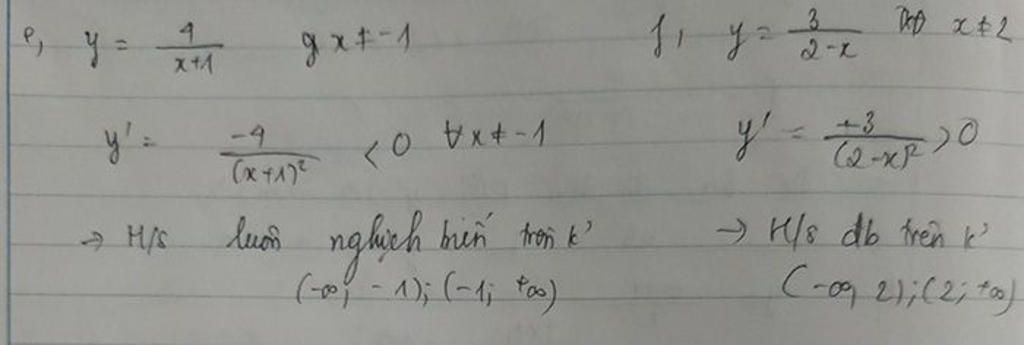 e, y = 4/(x+1) x ≠ -1
y' = -4/(x+1)² < 0 ∀x ≠ -1
→ H/s luôn nghịch biến trên k²
(-∞; -1); (-1; +∞)
f, y = 3/(2-x) x ≠ 2
y' = +3/(2-x)² > 0
→ H/s đb trên k²
(-∞, 2); (2; +∞)